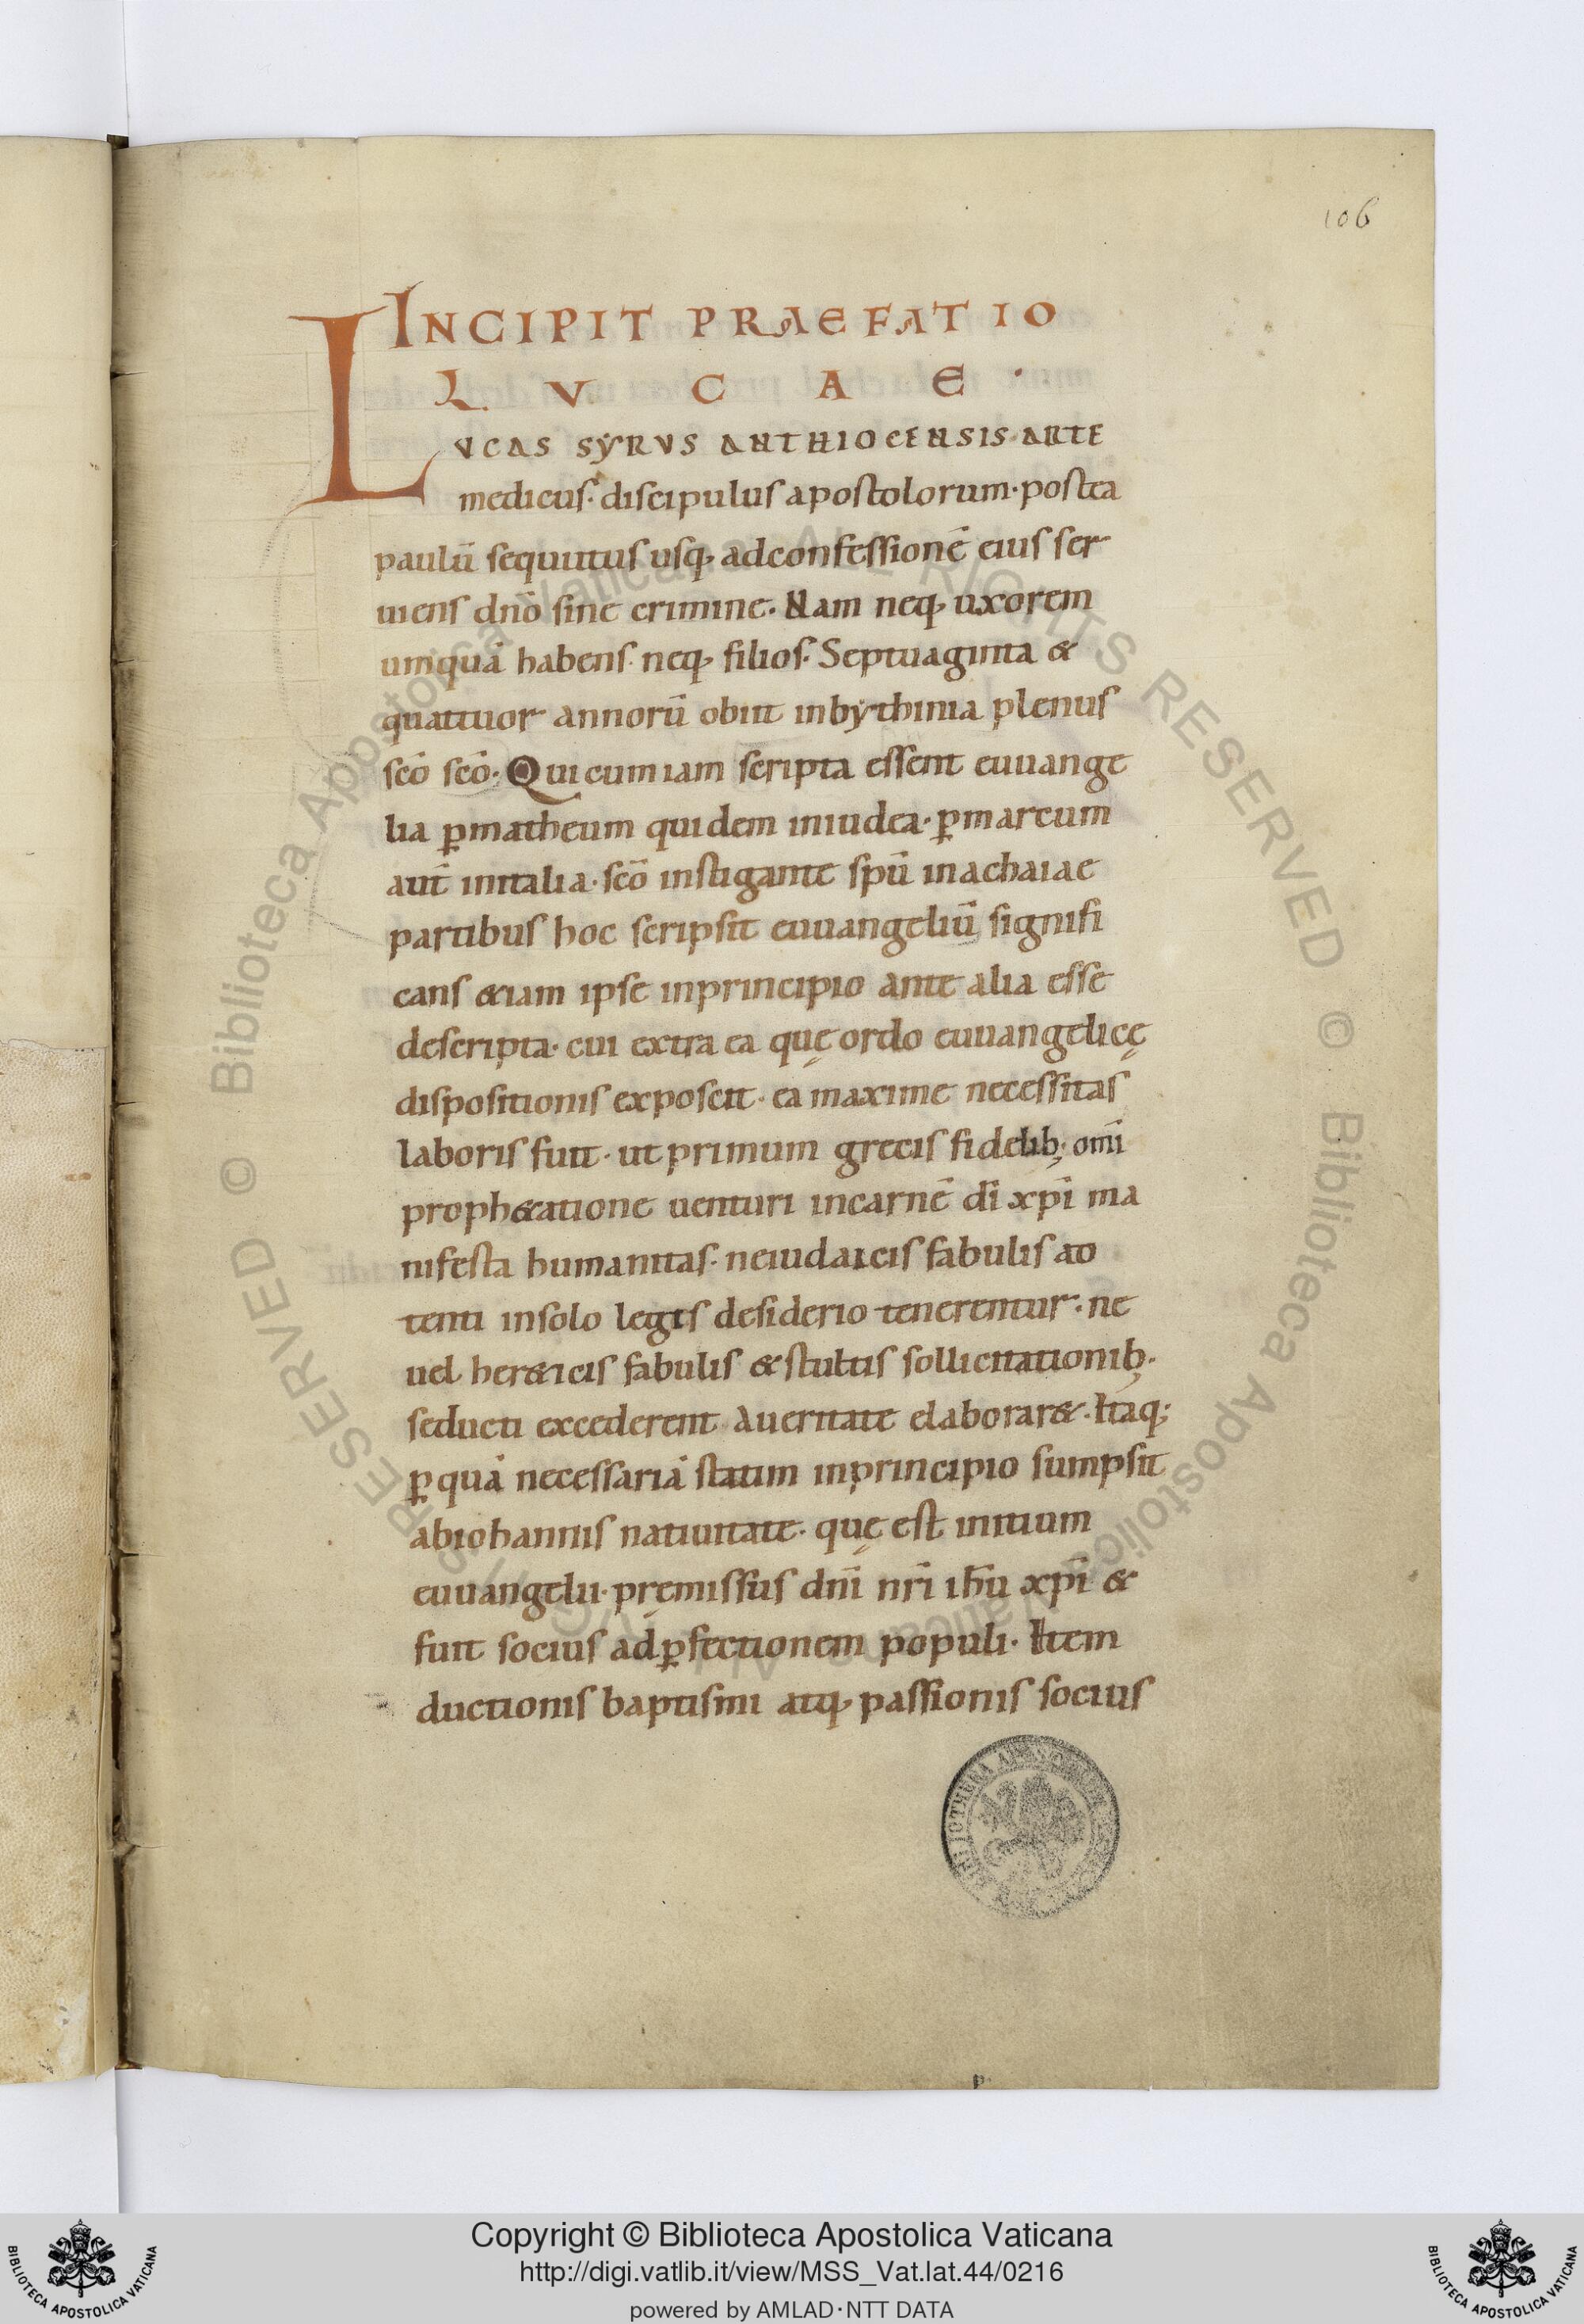 106
INCIPIT PRAEFATIO
LVCAE·
LVCAS SYRVS ANTHIOCENSIS·ARTE
medicus· discipulus apostolorum· postea
paulū sequutus usq; adconfessionē eius ser
uiens dnō sine crimine. Nam neq; uxorem
umquā habens· neq; filios. Septuaginta &
quattuor annorū obiit inbythinia plenus
scō scō. Qui cum iam scripta essent euuange
lia ꝑmatheum quidem iniudea· ꝑmarcum
aut̄ initalia· scō instigante spū inachaiae
partibus hoc scripsit euuangeliū signifi
cans &iam ipse inprincipio ante alia esse
descripta· cui extra ea quę ordo euuangelicę
dispositionis exposcit· ea maxime necessitas
laboris fuit· ut primum grecis fidelib; omī
proph&atione uenturi incarnē dī xpī ma
nifesta humanitas· neiudaicis fabulis ad
tenti insolo legis desiderio tenerentur· ne
uel her&icis fabulis & stultis sollicitationib;
seducti excederent aueritate elaborar&. Itaq;
ꝑ quā necessariā statim inprincipio sumpsit
abiohannis natiuitate· quę est initium
euuangelii· pręmissus dnī nrī ihū xpī &
fuit socius adꝑfectionem populi· Item
ductionis baptismi atq; passionis socius
p
Copyright © Biblioteca Apostolica Vaticana
http://digi.vatlib.it/view/MSS_Vat.lat.44/0216
powered by AMLAD·NTT DATA
BIBLIOTECA APOSTOLICA VATICANA
BIBLIOTECA APOSTOLICA VATICANA